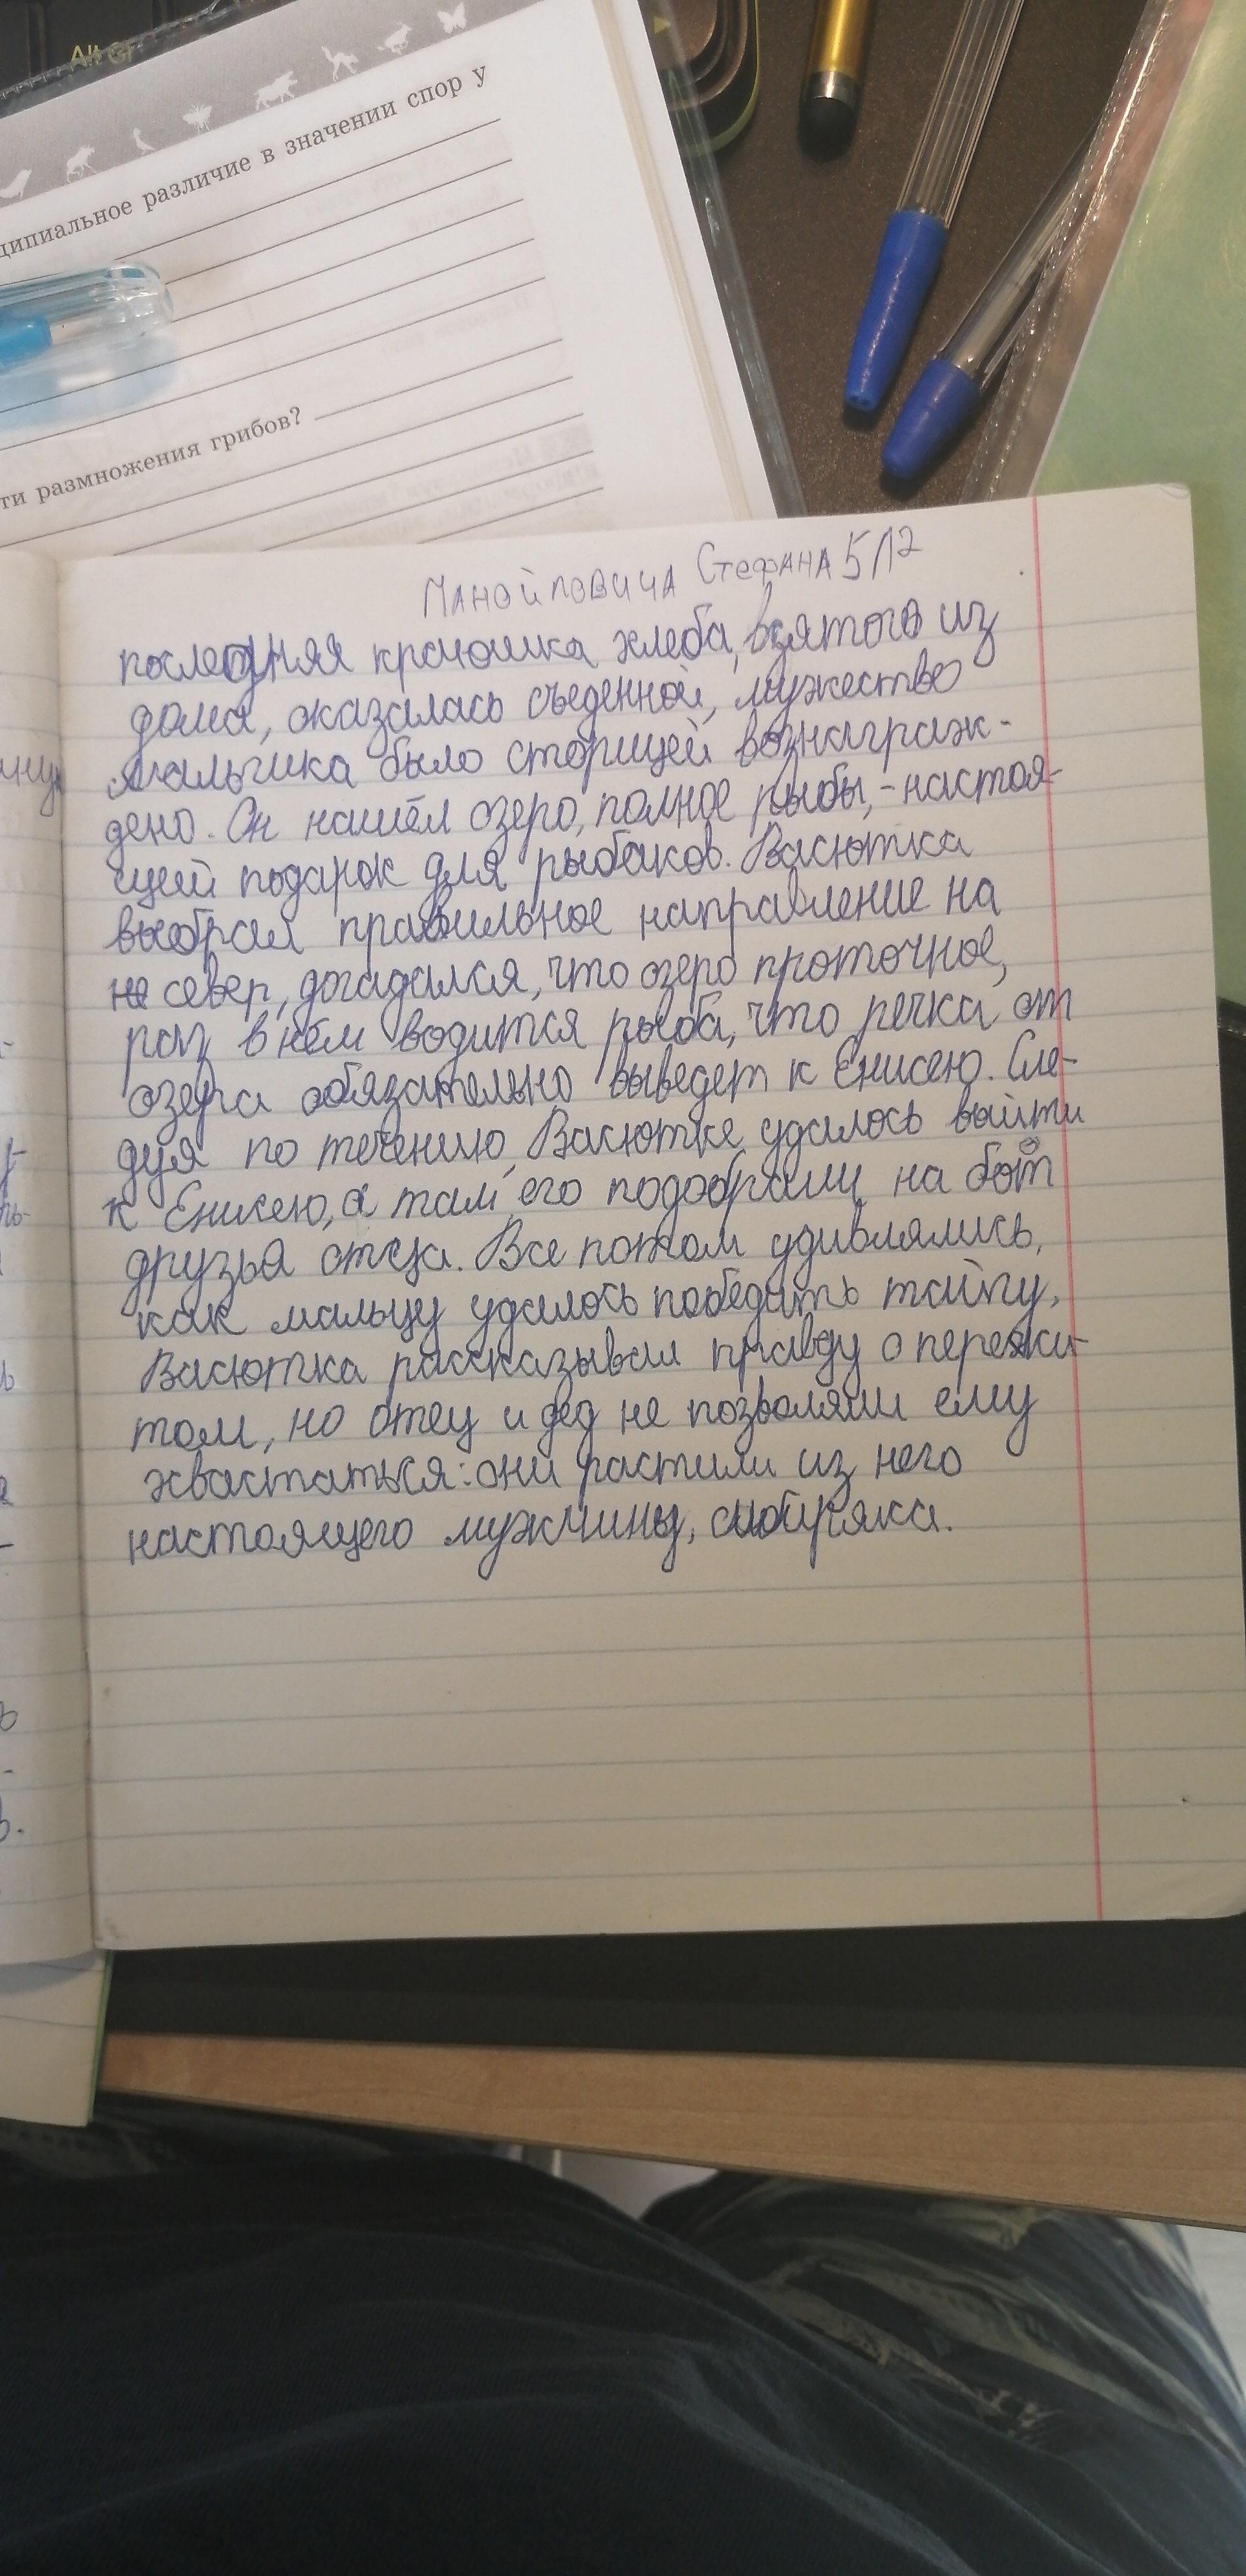 Alt Gr
ципиальное различие в значении спор у
ти размножения грибов?
Манойловича Стефана 5/12
последняя краюшка хлеба, взятого из
дома, оказалась съеденной, мужество
мальчика было сторицей вознаграж-
дено. Он нашёл озеро, полное рыбы, - настоя-
щей подарок для рыбаков. Васютка
выбрал правильное направление на
не север, догадался, что озеро проточное,
раз в нём водится рыба, что речка от
озера обязательно выведет к Енисею. Сле-
дуя по течению, Васютке удалось выйти
к Енисею, а там его подобрали на бот
друзья отца. Все потом удивлялись,
как мальцу удалось победить тайгу,
Васютка рассказывал правду о пережи-
том, но отец и дед не позволяли ему
хвастаться: они растили из него
настоящего мужчины, сибиряка.